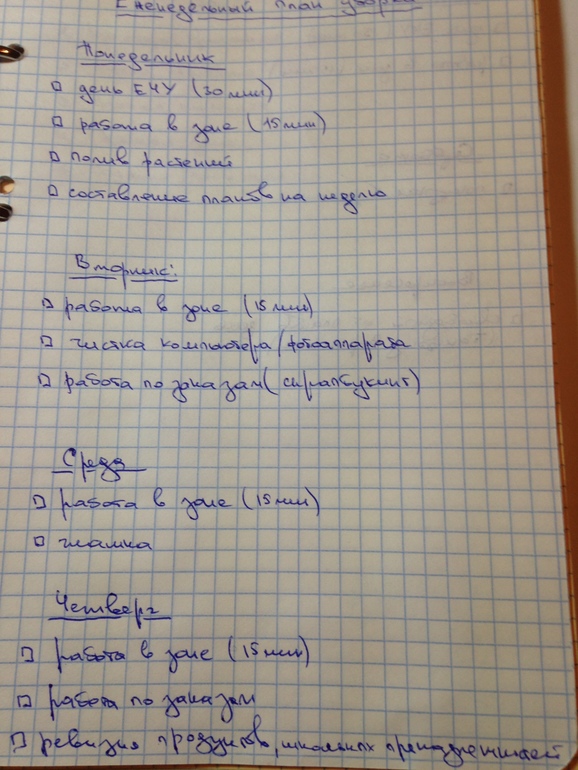 Еженедельный план уборки
Понедельник
день ЕЧУ (30 мин)
работа в зоне (15 мин)
полив растений
составление планов на неделю
Вторник:
работа в зоне (15 мин)
чистка компьютера/фотоаппарата
работа по заказам (скрапбукинг)
Среда
работа в зоне (15 мин)
глажка
Четверг
работа в зоне (15 мин)
работа по заказам
ревизия продуктов, школьных принадлежностей